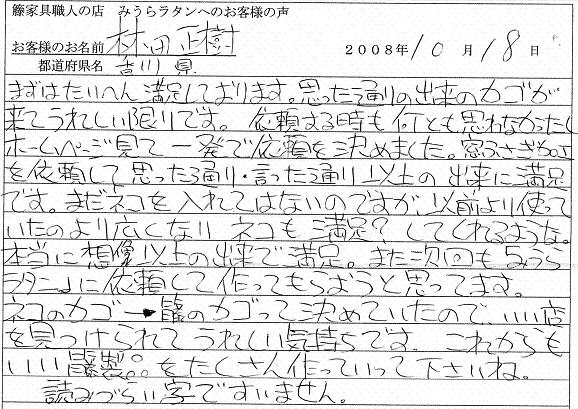 籐家具職人の店 みうらラタンへのお客様の声
お客様のお名前 林田 正樹 2008年10月18日
都道府県名 香川県
まずはたいへん満足しております。思った通りの出来のカゴが
来てうれしい限りです。依頼する時も何とも思わなかったし
ホームページ見て一発で依頼を決めました。窓ふさぎ
を依頼して思った通り・言った通り以上の出来に満足
です。まだネコを入れてはないのですが、以前より使って
いたのより広くなり ネコも満足?してくれるような。
本当に想像以上の出来で満足。また次回も「みうら
ラタン」に依頼して作ってもらおうと思ってます。
ネコのカゴ→籐のカゴって決めていたので、いい店
を見つけられてうれしい気持ちです。これからも
いい籐製品をたくさん作っていって下さいね。
読みづらい字ですいません。